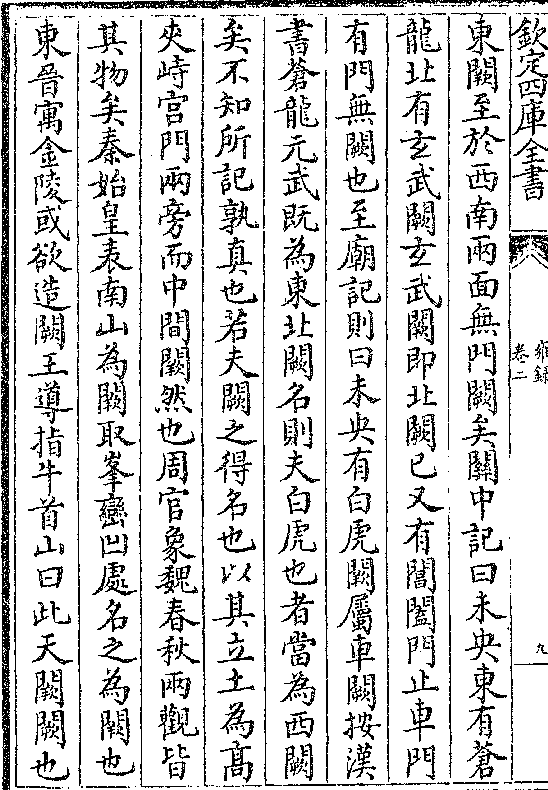 欽定四庫全書
雍録
卷二
九
東闕至於西南兩面無門闕矣關中記曰未央東有蒼
龍北有玄武闕玄武闕即北闕已又有閶闔門止車門
有門無闕也至廟記則曰未央有白虎闕屬車闕按漢
書蒼龍元武既為東北闕名則夫白虎也者當為西闕
矣不知所記孰真也若夫闕之得名也以其立土為髙
夾峙宫門兩旁而中間闕然也周官象魏春秋兩觀皆
其物矣秦始皇表南山為闕取峯巒凹處名之為闕也
東晉寓金陵或欲造闕王導指牛首山曰此天闕闕也